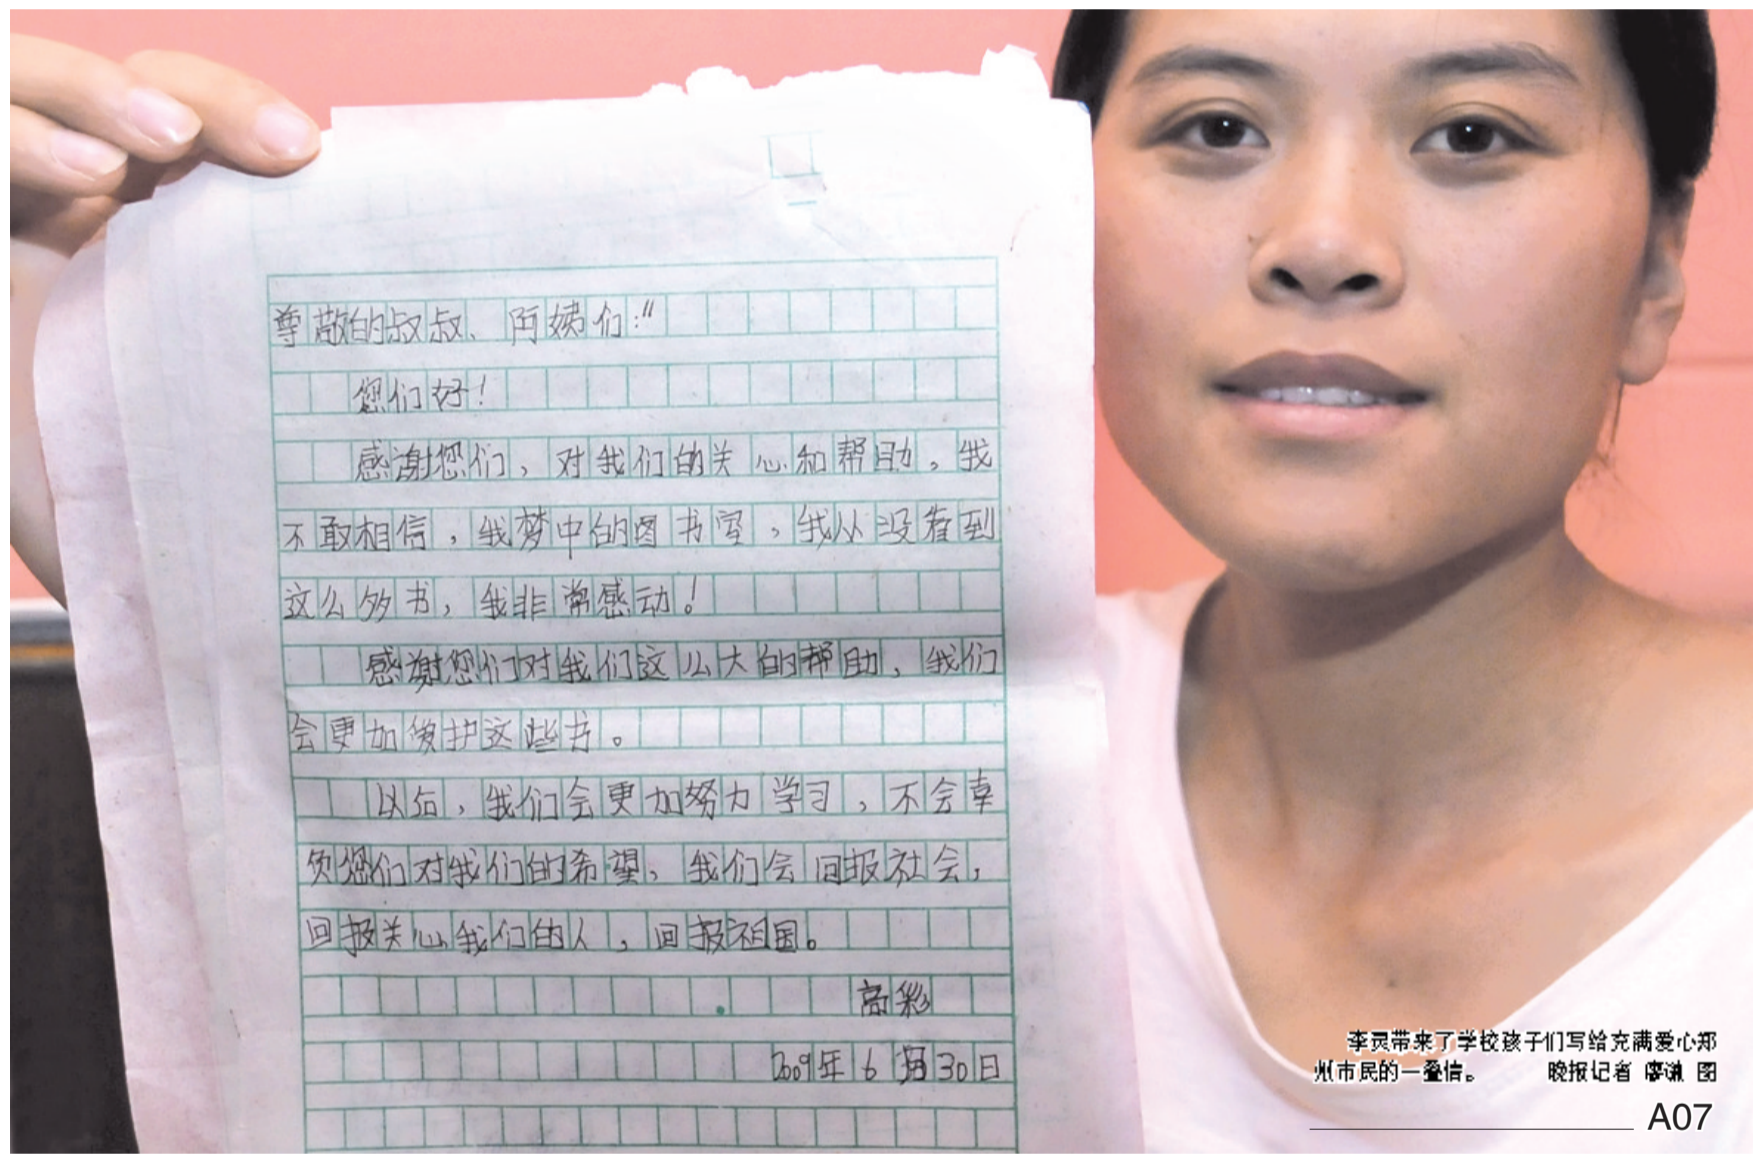 尊敬的叔叔、阿姨们："
您们好！
感谢您们，对我们的关心和帮助，我
不敢相信，我梦中的图书室，我从没看到
这么多书，我非常感动！
感谢您们对我们这么大的帮助，我们
会更加爱护这些书。
以后，我们会更加努力学习，不会辜
负您们对我们的希望，我们会回报社会，
回报关心我们的人，回报祖国。
高彩
2009年6月30日
李灵带来了学校孩子们写给充满爱心郑
州市民的一叠信。 晚报记者 廖谦 图
A07